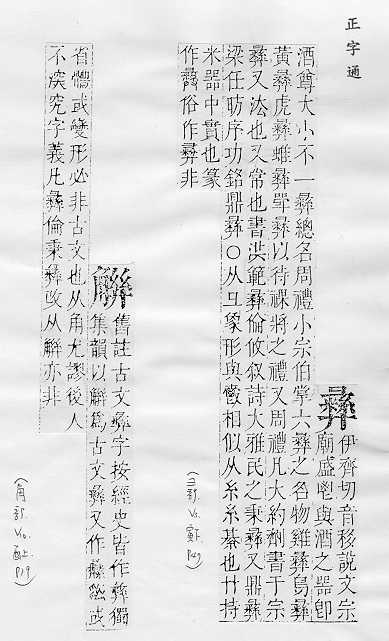 正字通
彝 伊齊切音移說文宗
廟盛鬯與酒之器卽
酒尊大小不一彝總名周禮小宗伯掌六彝之名物雞彝鳥彝
黃彝虎彝蜼彝斝彝以待祼將之禮又周禮凡大約劑書于宗
彝又法也又常也書洪範彝倫攸叙詩大雅民之秉彝又鼎彝
梁任昉序功銘鼎彝○从彑象形與彘相似从糸糸綦也廾持
米器中實也篆
作俗作彛非
舊註古文彝字按經史皆作彝獨
集韻以爲古文彝又作或
省或變形必非古文也从角尤謬後人
不深究字義凡彝倫秉彝攺从亦非
(角部. V10. 酉上. P19)